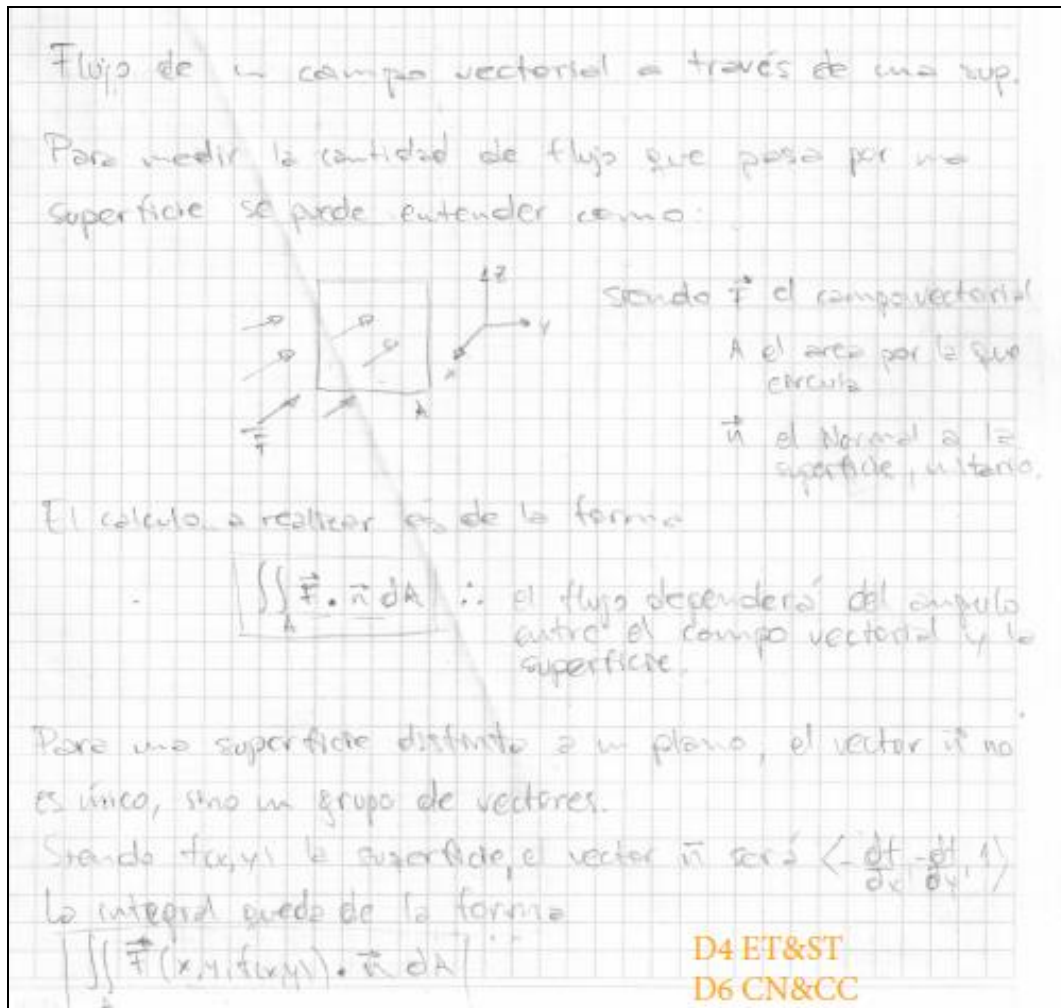 Flujo de un campo vectorial a través de una sup.
Para medir la cantidad de flujo que pasa por una
superficie se puede entender como:
Z
Y
x
A
F⃗
siendo F⃗ el campo vectorial
A el area por la que
circula
n⃗ el Normal a la
superficie, unitario.
El calculo a realizar es de la forma
∬_A F⃗ · n⃗ dA ∴ el flujo dependerá del angulo
entre el campo vectorial y la
superficie.
Para una superficie distinta a un plano, el vector n⃗ no
es único, sino un grupo de vectores.
Siendo f(x,y) la superficie, el vector n⃗ será ⟨-∂f/∂x, -∂f/∂y, 1⟩
La integral queda de la forma
∬_A F⃗(x,y,f(x,y)) · n⃗ dA
D4 ET&ST
D6 CN&CC